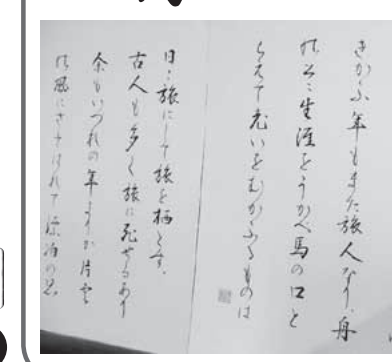 きかふ年もまた旅人なり、舟
の上に生涯をうかべ馬の口と
らえて老いをむかふるものは
日々旅にして旅を栖とす、
古人も多く旅に死せるあり
余もいつれの年よりか片雲
の風にさそはれて漂泊の思